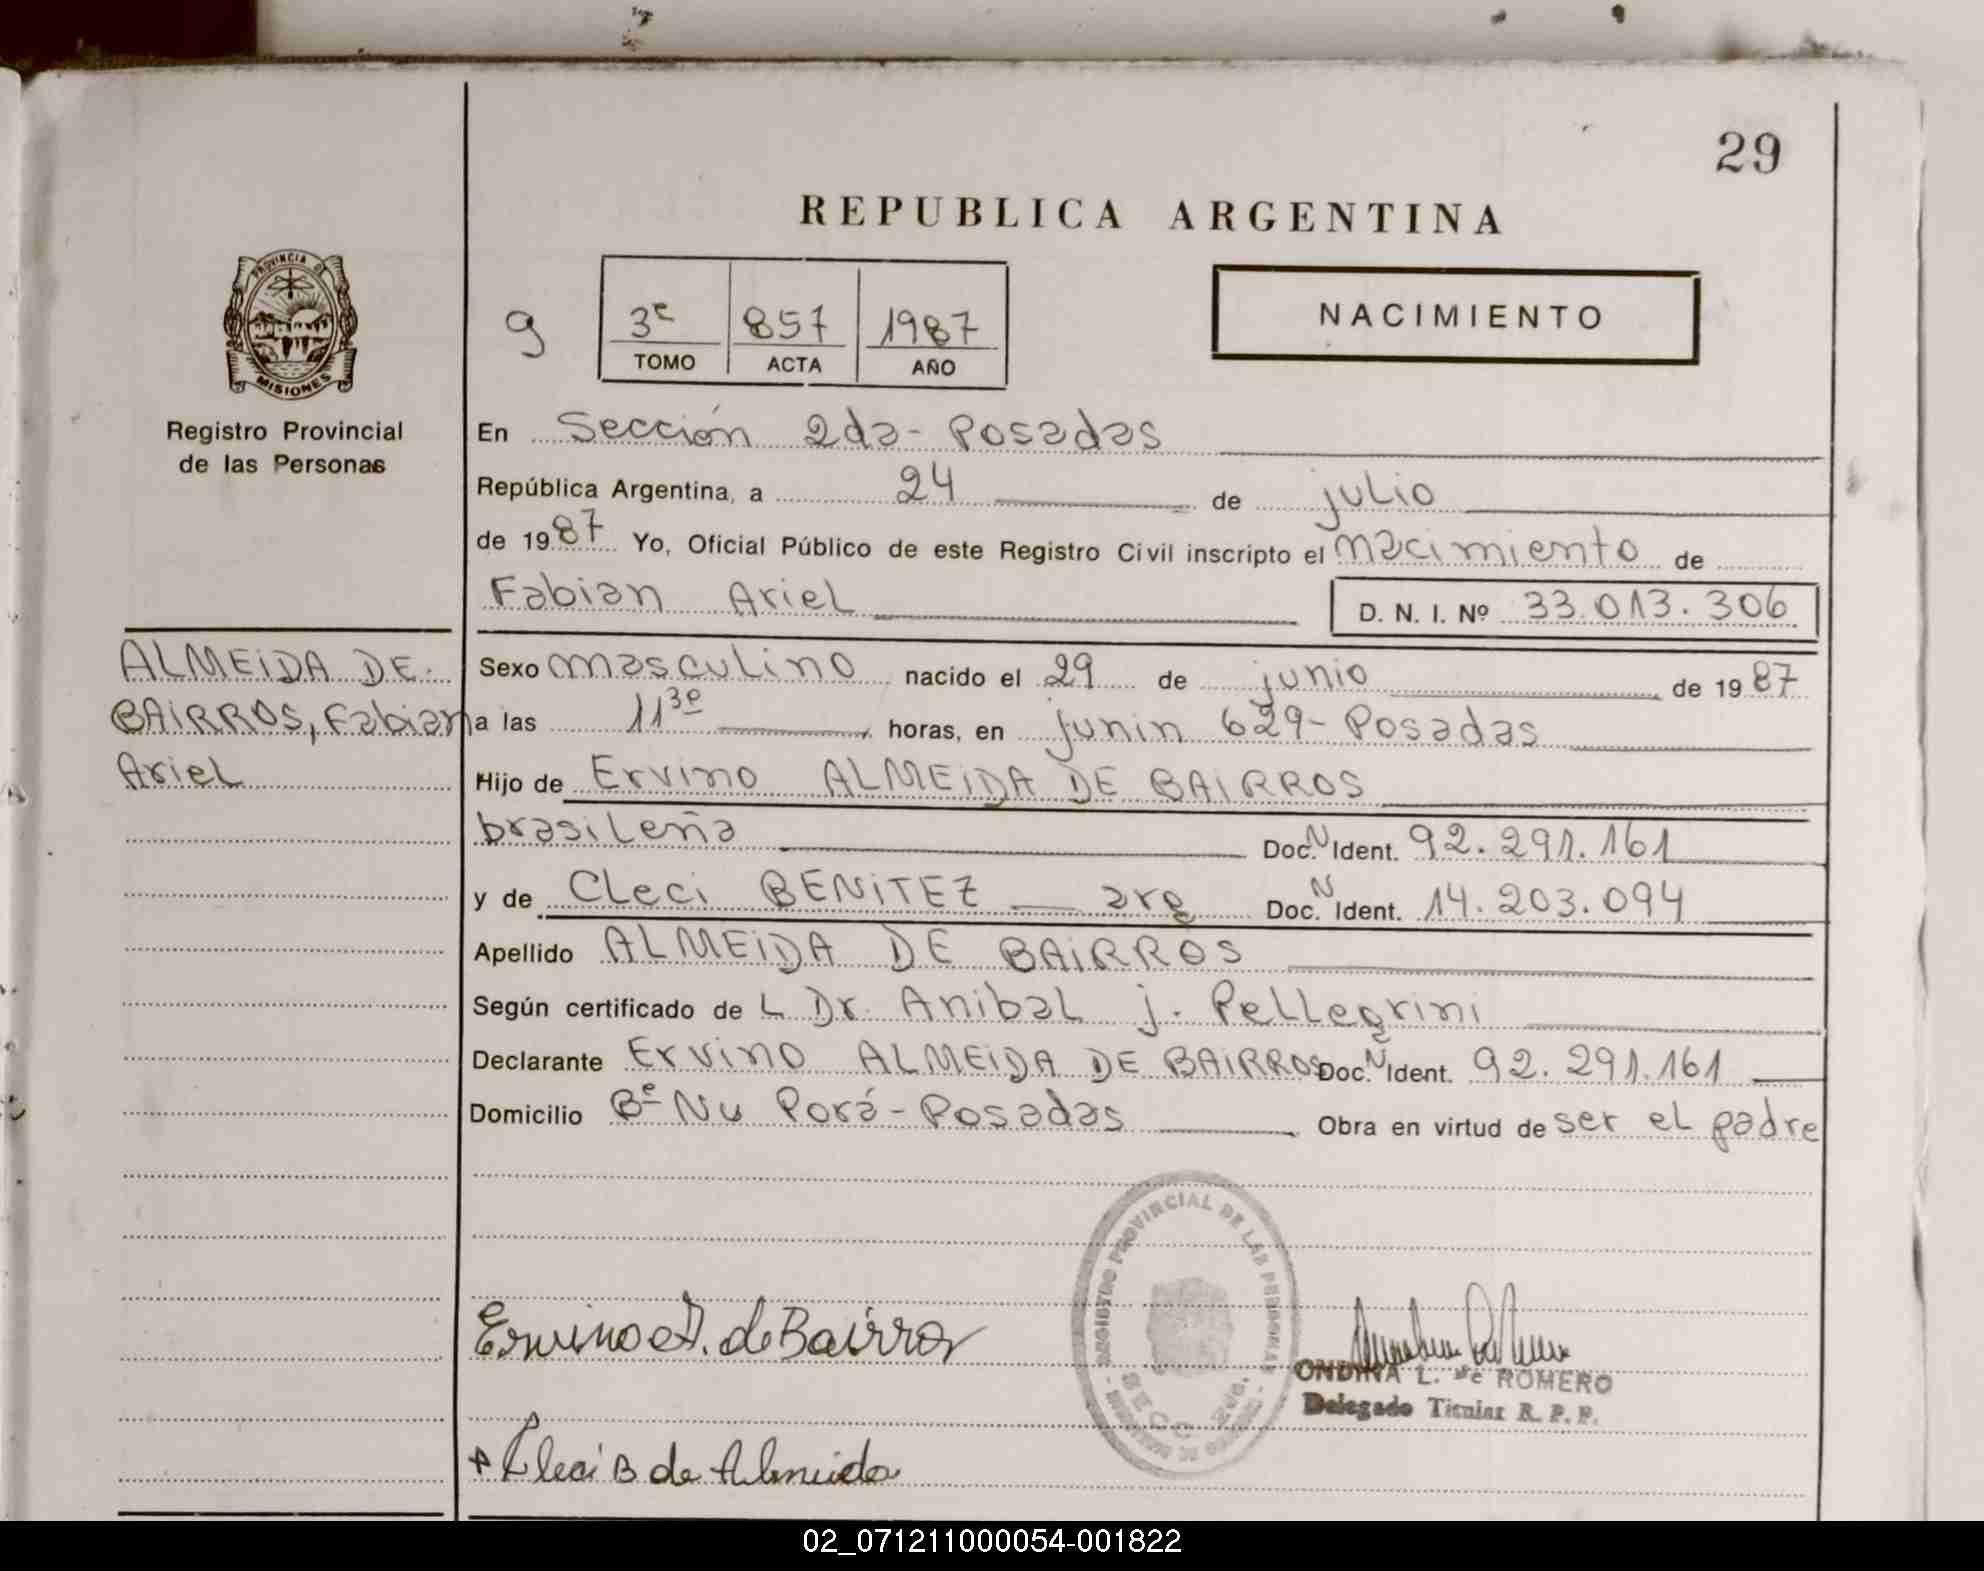 29
REPUBLICA ARGENTINA
PROVINCIA DE
MISIONES
Registro Provincial
de las Personas
9
3º 857 1987
TOMO ACTA AÑO
NACIMIENTO
En Sección 2da - Posadas
República Argentina, a 24 de julio
de 1987 Yo, Oficial Público de este Registro Civil inscripto el nacimiento de
Fabian Ariel D. N. I. Nº 33.013.306
ALMEIDA DE
BAIRROS, Fabian
Ariel
Sexo masculino nacido el 29 de junio de 1987
a las 11 30 horas, en junin 629 - Posadas
Hijo de Ervino ALMEIDA DE BAIRROS
brasileña Doc. N Ident. 92.291.161
y de Cleci BENITEZ arg Doc. N Ident. 14.203.094
Apellido ALMEIDA DE BAIRROS
Según certificado de L Dr. Anibal j. Pellegrini
Declarante Ervino ALMEIDA DE BAIRROS Doc. N Ident. 92.291.161
Domicilio Bº Ñu Porá - Posadas Obra en virtud de ser el padre
REGISTRO PROVINCIAL DE LAS PERSONAS
SECC. 2da.
Ervino A. de Bairros
ONDINA L. de ROMERO
Delegado Titular R. P. P.
Cleci B de Almeida
02_071211000054-001822